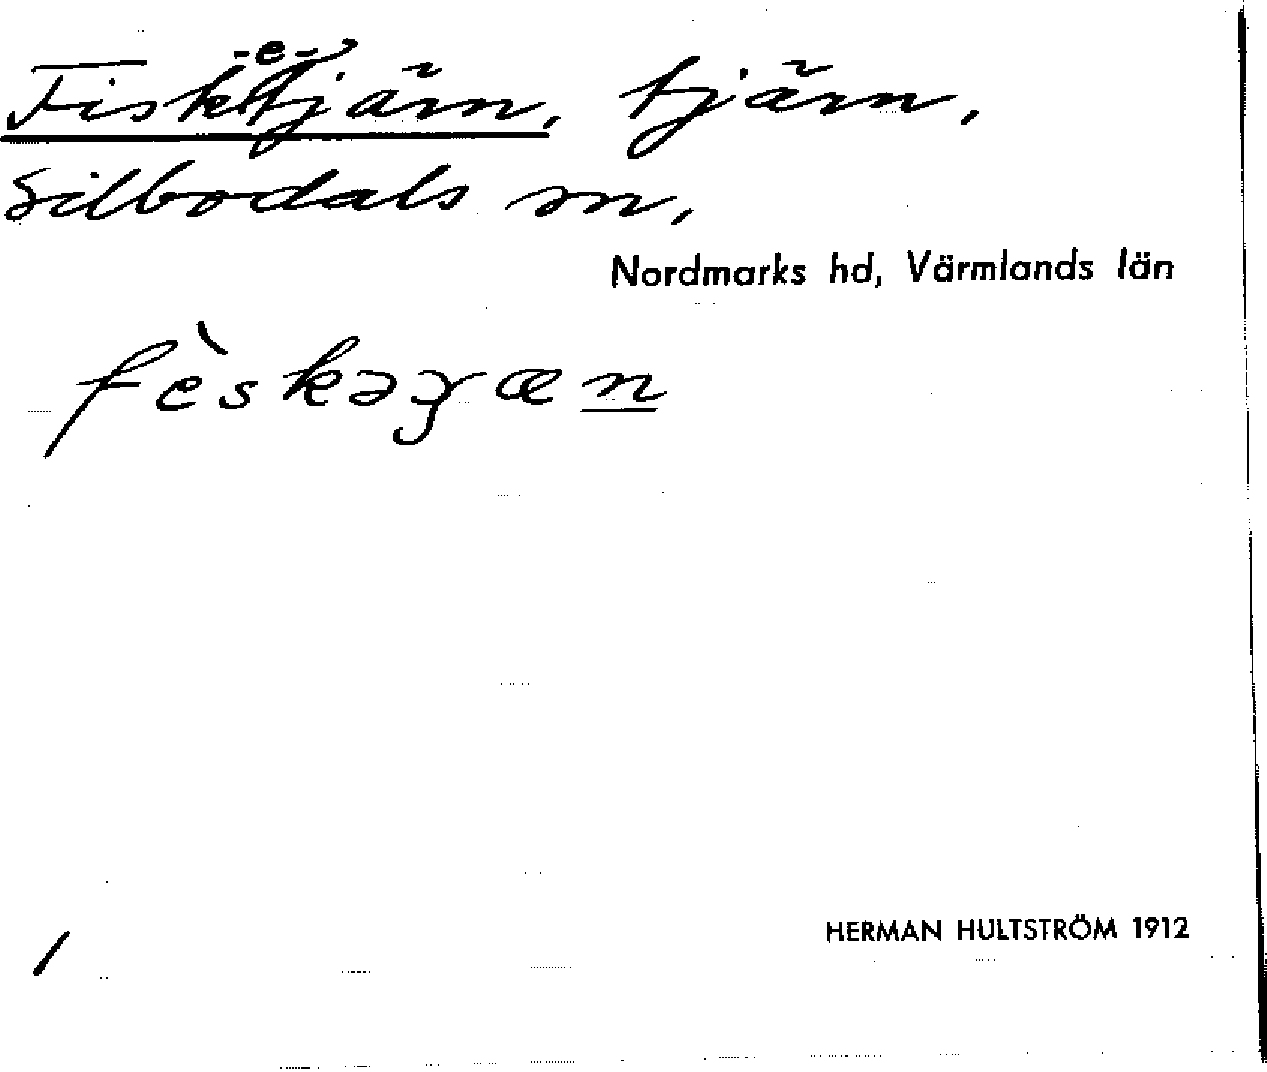 -e-
Fisktjärn, tjärn,
Silbodals sn,
Nordmarks hd, Värmlands län
fèskəʒæn
HERMAN HULTSTRÖM 1912
/